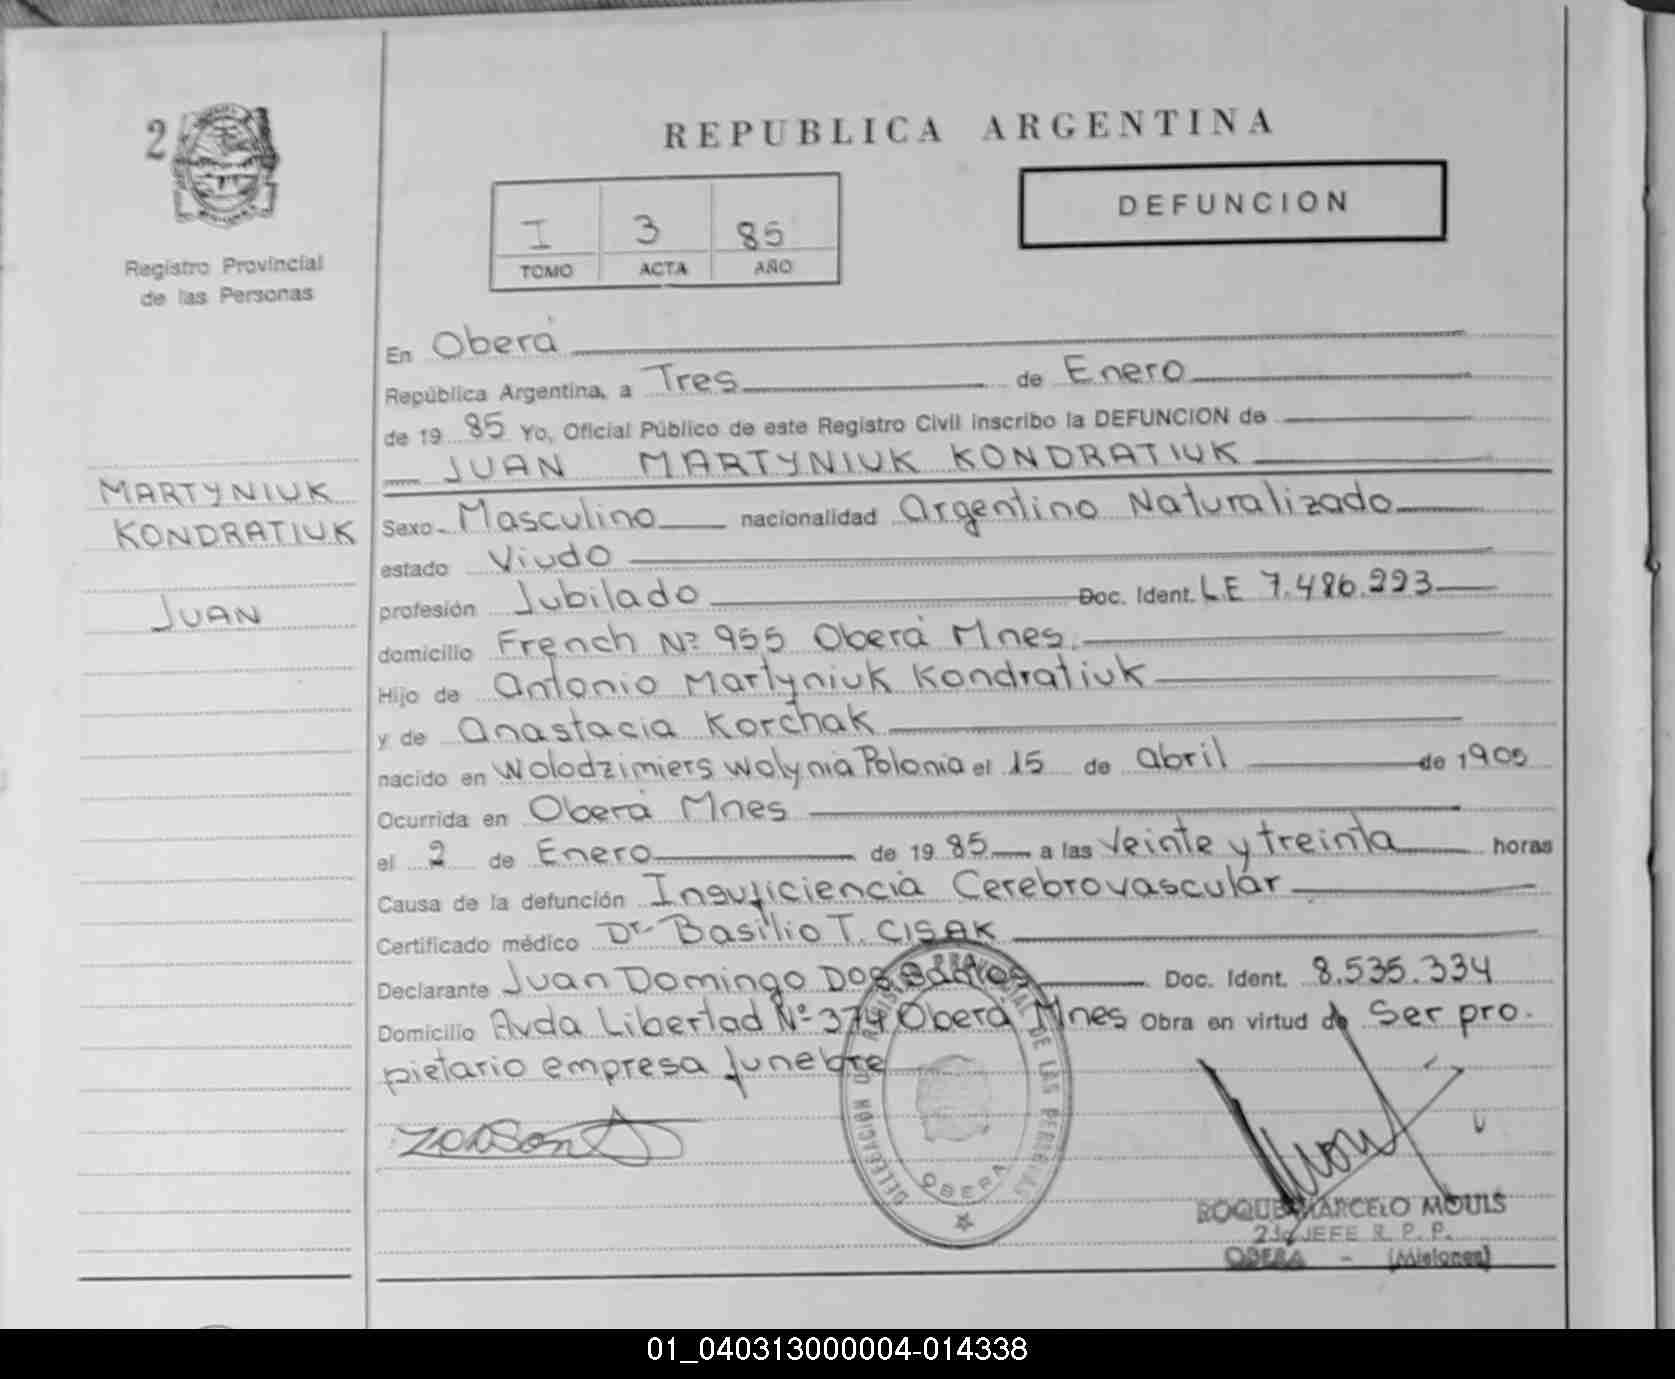 2
Registro Provincial
de las Personas
MARTYNIUK
KONDRATIUK
JUAN
REPUBLICA ARGENTINA
I 3 85
TOMO ACTA AÑO
DEFUNCION
En Oberá
República Argentina, a Tres de Enero
de 19 85 Yo, Oficial Público de este Registro Civil inscribo la DEFUNCION de
JUAN MARTYNIUK KONDRATIUK
Sexo Masculino nacionalidad Argentino Naturalizado
estado Viudo
profesión Jubilado Doc. Ident. LE 7.486.223
domicilio French Nº 955 Oberá Mnes.
Hijo de Antonio Martyniuk Kondratiuk
y de Anastacia Korchak
nacido en Wolodzimiers Wolynia Polonia el 15 de abril de 1905
Ocurrida en Oberá Mnes
el 2 de Enero de 19 85 a las Veinte y treinta horas
Causa de la defunción Insuficiencia Cerebrovascular
Certificado médico Dr. Basilio T. CISAK
Declarante Juan Domingo Dos Santos Doc. Ident. 8.535.334
Domicilio Avda Libertad Nº 374 Oberá Mnes Obra en virtud de Ser pro-
pietario empresa funebre
DELEGACIÓN REGISTRO PROVINCIAL DE LAS PERSONAS
OBERA
ROQUE MARCELO MOULS
2do JEFE R. P. P.
OBERA - (Misiones)
01_040313000004-014338